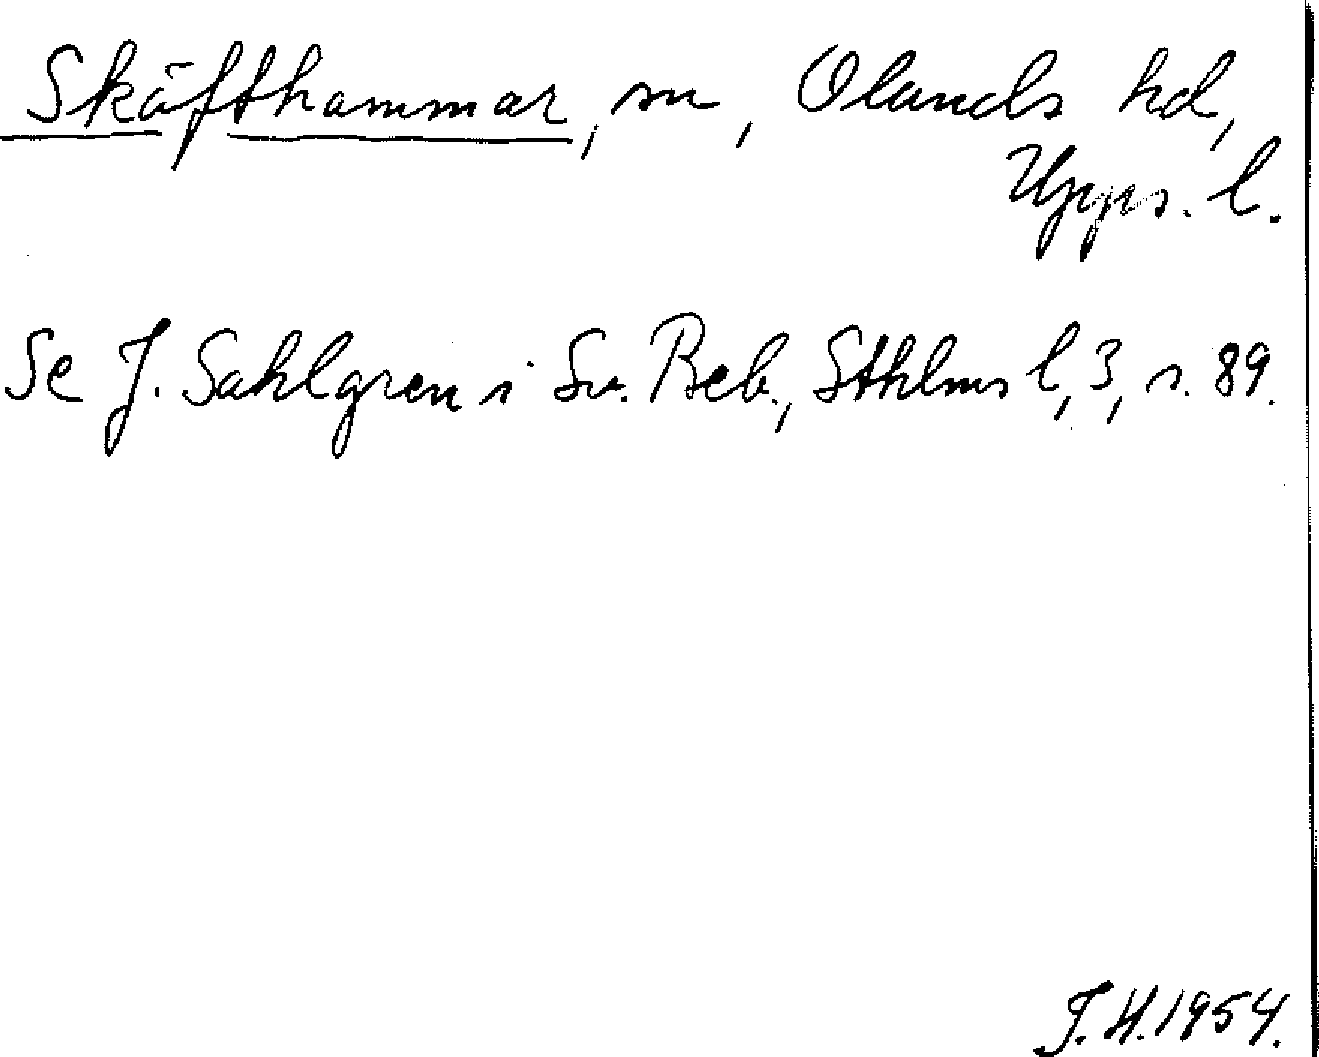 Skäfthammar, sn, Olands hd,
Upps. l.
Se J. Sahlgren i Sv. Beb., Sthlms l, 3, s. 89.
J. H. 1954.